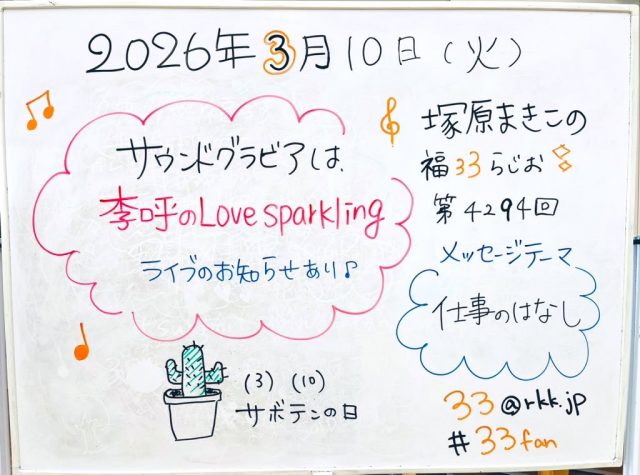 2026年3月10日(火)
サウンドグラビアは、
李呼のLove sparkling
ライブのお知らせあり♪
塚原まきこの
福33らじお
第4294回
メッセージテーマ
仕事のはなし
(3) (10)
サボテンの日
33@rkk.jp
#33fan